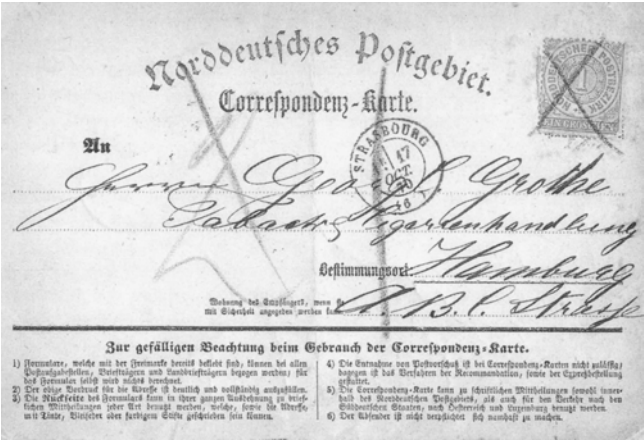 Norddeutsches Postgebiet.
Correspondenz-Karte.
NORDDEUTSCHER POSTBEZIRK
1
EIN GROSCHEN
STRASBOURG
17
OCT.
70
An
Herrn Geo Grothe
Cigarrenhandlung
Bestimmungsort: Hamburg
Wohnung des Empfängers, wenn sie
mit Sicherheit angegeben werden kann
A. B. C. Strasse
Zur gefälligen Beachtung beim Gebrauch der Correspondenz-Karte.
1) Formulare, welche mit der Freimarke bereits beklebt sind, können bei allen
Postanstalten, Briefträgern und Landbriefträgern bezogen werden; für
das Formular selbst wird nichts berechnet.
2) Der obige Vordruck für die Adresse ist deutlich und vollständig auszufüllen.
3) Die Rückseite des Formulars kann in ihrer ganzen Ausdehnung zu brief-
lichen Mittheilungen jeder Art benutzt werden, welche, sowie die Adresse,
mit Tinte, Bleifeder oder farbigem Stifte geschrieben sein können.
4) Die Entnahme von Postvorschuß ist bei Correspondenz-Karten nicht zulässig,
dagegen ist das Verfahren der Recommandation, sowie der Expreßbestellung
gestattet.
5) Die Correspondenz-Karte kann zu schriftlichen Mittheilungen sowohl inner-
halb des Norddeutschen Postgebiets, als auch für den Verkehr nach den
Süddeutschen Staaten, nach Oesterreich und Luxemburg benutzt werden.
6) Der Absender ist nicht verpflichtet sich namhaft zu machen.